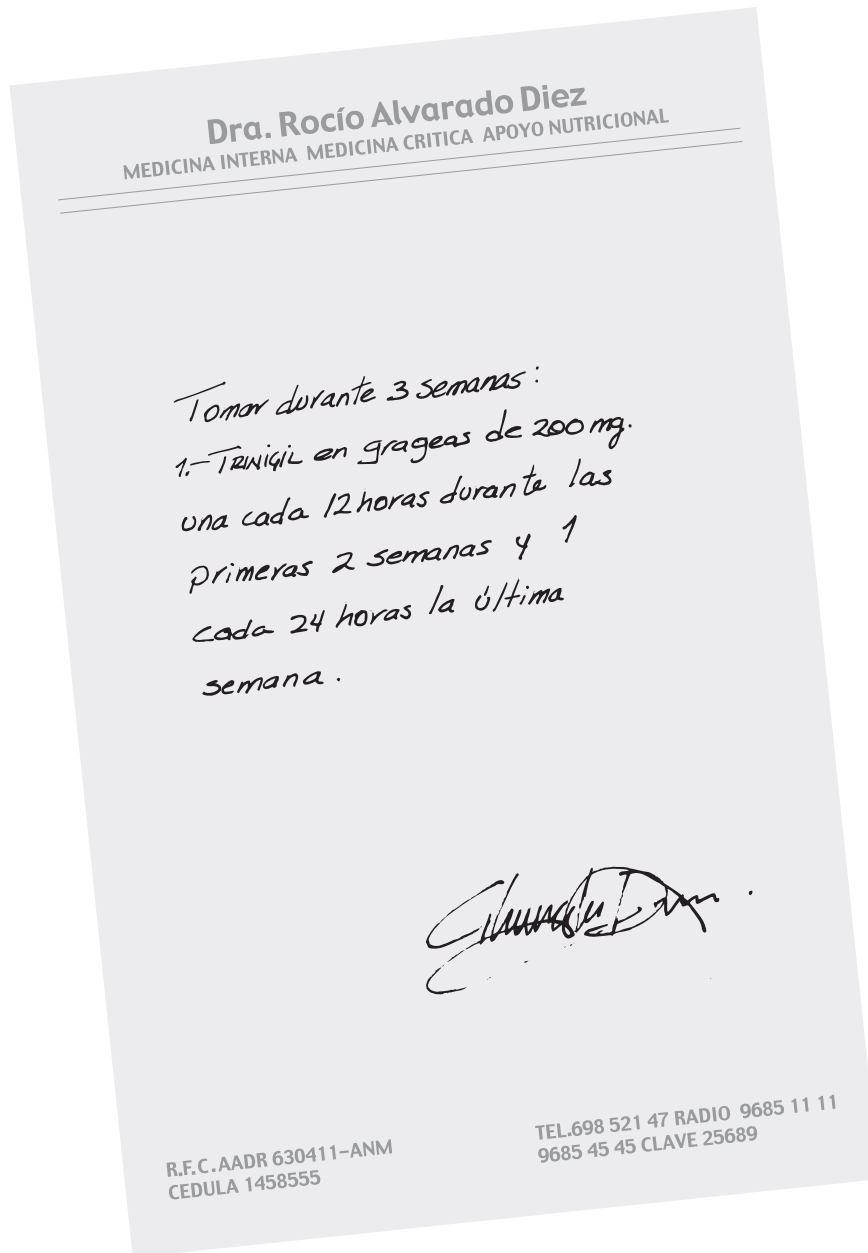 Dra. Rocío Alvarado Diez
MEDICINA INTERNA MEDICINA CRITICA APOYO NUTRICIONAL
Tomar durante 3 semanas:
1.- TRINIGIL en grageas de 200 mg.
una cada 12 horas durante las
primeras 2 semanas y 1
cada 24 horas la última
semana.
R.F.C.AADR 630411-ANM
CEDULA 1458555
TEL.698 521 47 RADIO 9685 11 11
9685 45 45 CLAVE 25689